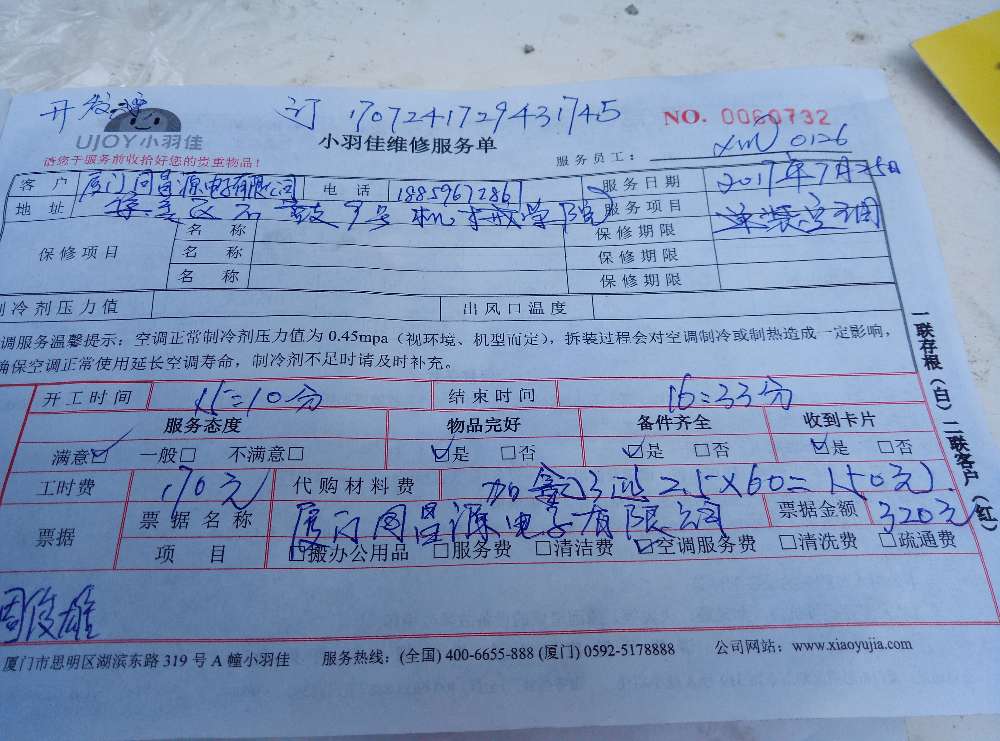 开发票 订 1707241729431745 NO. 0060732
UJOY小羽佳 小羽佳维修服务单 服务员工： xm 0126
请您于服务前收拾好您的贵重物品！
客户 厦门同昌源电子有限公司 电话 18859672861 服务日期 2017年7月25日
地址 集美区 9号 机械学院 服务项目 空调
保修项目 名称 保修期限
名称 保修期限
名称 保修期限
制冷剂压力值 出风口温度
调服务温馨提示：空调正常制冷剂压力值为 0.45mpa（视环境、机型而定），拆装过程会对空调制冷或制热造成一定影响，
确保空调正常使用延长空调寿命，制冷剂不足时请及时补充。
开工时间 15=10分 结束时间 16=33分
服务态度 物品完好 备件齐全 收到卡片
满意☑ 一般□ 不满意□ ☑是 □否 ☑是 □否 ☑是 □否
工时费 170元 代购材料费 加 2.5×60=150元
票据 票据名称 厦门同昌源电子有限公司 票据金额 320元
项目 □搬办公用品 □服务费 □清洁费 ☑空调服务费 □清洗费 □疏通费
周俊雄
厦门市思明区湖滨东路 319 号 A 幢小羽佳 服务热线：(全国) 400-6655-888 (厦门) 0592-5178888 公司网站：www.xiaoyujia.com
一联存根（白）二联客户（红）